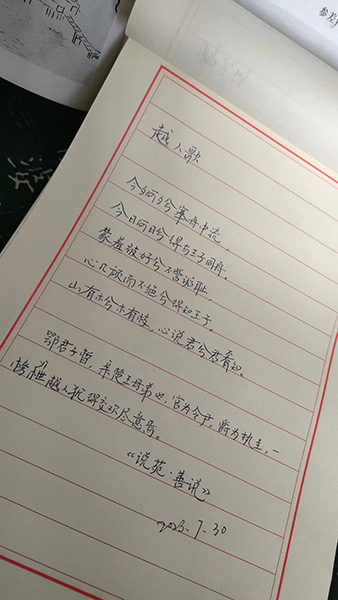 越人歌
今夕何夕兮搴舟中流，
今日何日兮得与王子同舟。
蒙羞被好兮不訾诟耻。
心几顽而不绝兮得知王子。
山有木兮木有枝，心说君兮君不知。
鄂君子晳，亲楚王母弟也，官为令尹，爵为执圭，一
榜枻越人犹得交欢尽意焉。
《说苑·善说》
2023.7.30